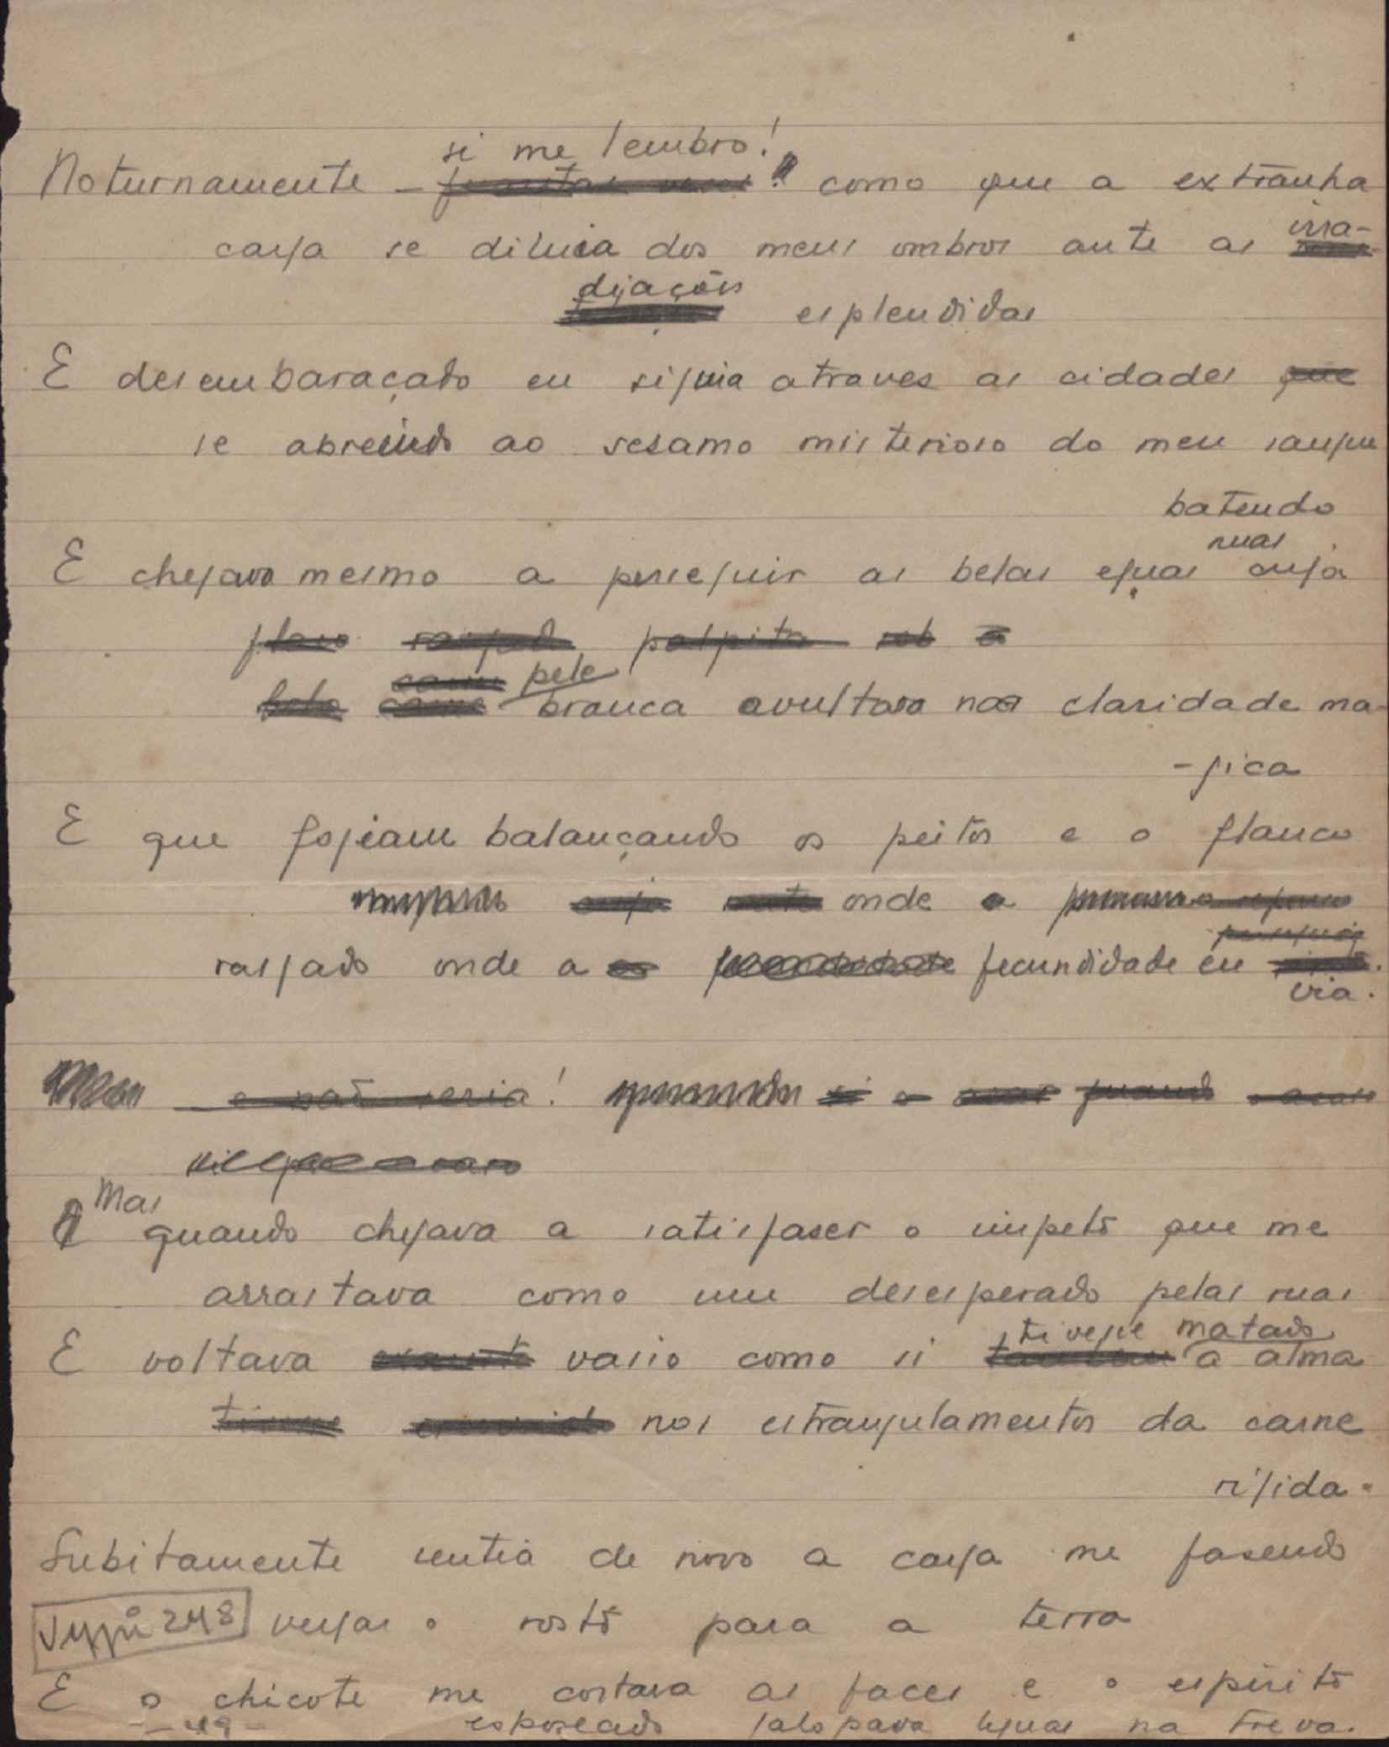 si me lembro!
Noturnamente — ! como que a extranha
carga se diluia dos meus ombros ante as irra-
diações esplendidas
E desembaraçado eu siguia atraves as cidades que
se abrindo ao sesamo misterioso do meu sangue
batendo
E chegava mesmo a perseguir as belas eguas nuas cuja
flanco rasgado palpita sob a
pele
branca avultava na claridade ma-
-gica
E que fogiam balançando os peitos e o flanco
onde a
rasgado onde a fecundidade eu
via.
e não seria! quando
Mas
quando chegava a satisfaser o impeto que me
arrastava como um desesperado pelas ruas
E voltava vasio como si tivesse matado a alma
nos estrangulamentos da carne
rigida.
Subitamente sentia de novo a carga me fasendo
248 vergar o rosto para a terra
E o chicote me cortava as faces e o espirito
esporeado galopava eguas na treva.
- 49 -